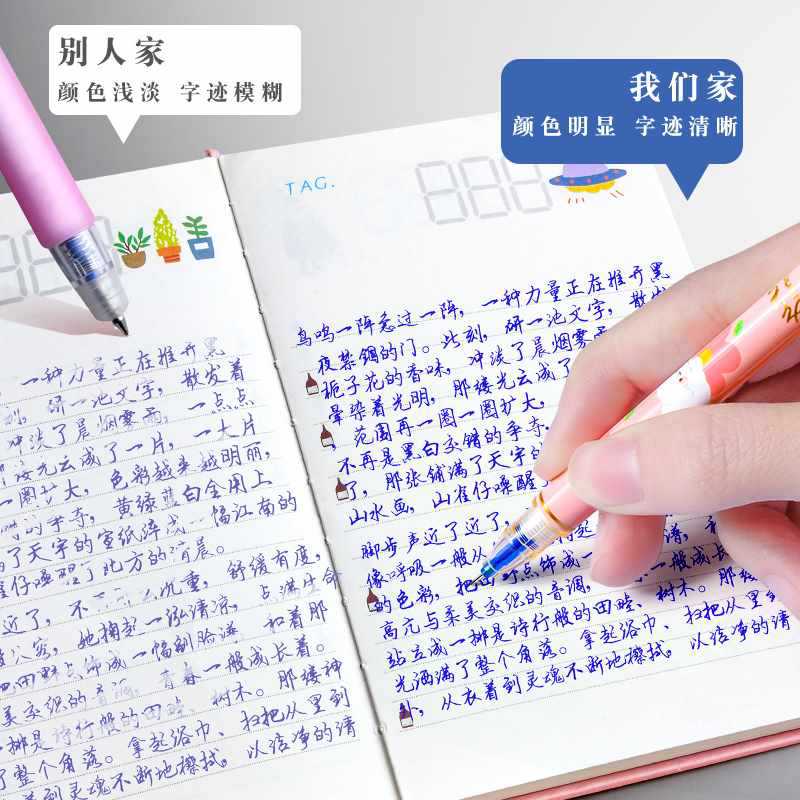 别人家
颜色浅淡 字迹模糊
我们家
颜色明显 字迹清晰
TAG.
888
一种力量正在推开黑
研一池文字,散发着
冲淡了晨烟雾雨,一点点
光云成了一片,一大片
一圈扩大,色彩越来越明丽,
的手夺,黄绿蓝白全用上
了天宇的宣纸 幅江南的
雀仔唤醒了北方的清晨。
近了,不 沉重,舒缓有度,
她掬起一泓清凉,点满生命
点饰成一幅 脸谱,和着那
美交织的音调,青春一般成长着。
一排是诗行般的田畦、树木。那缕神
了整个角落。拿起浴巾、扫把从里到
着到灵魂不断地擦拭,以洁净的请
鸟鸣一阵急过一阵,一种力量正在推开黑
夜禁锢的门。此刻,研一池文字,散发
栀子花的香味,冲淡了晨烟雾雨
晕染着光明,那缕光云成了
,范围再一圈一圈扩大,
不再是黑白交错的手夺,
了,那张铺满了天宇的
山水画,山雀仔唤醒了
脚步声近了近了,
像呼吸一般从 起 谱,
的色彩,把 点饰成一 一般成长
高亢与柔美交织的音调, 树木。那缕
站立成一排是诗行般的田畦、扫把从里到
光洒满了整个角落。拿起浴巾、以洁净的请
外,从衣着到灵魂不断地擦拭,